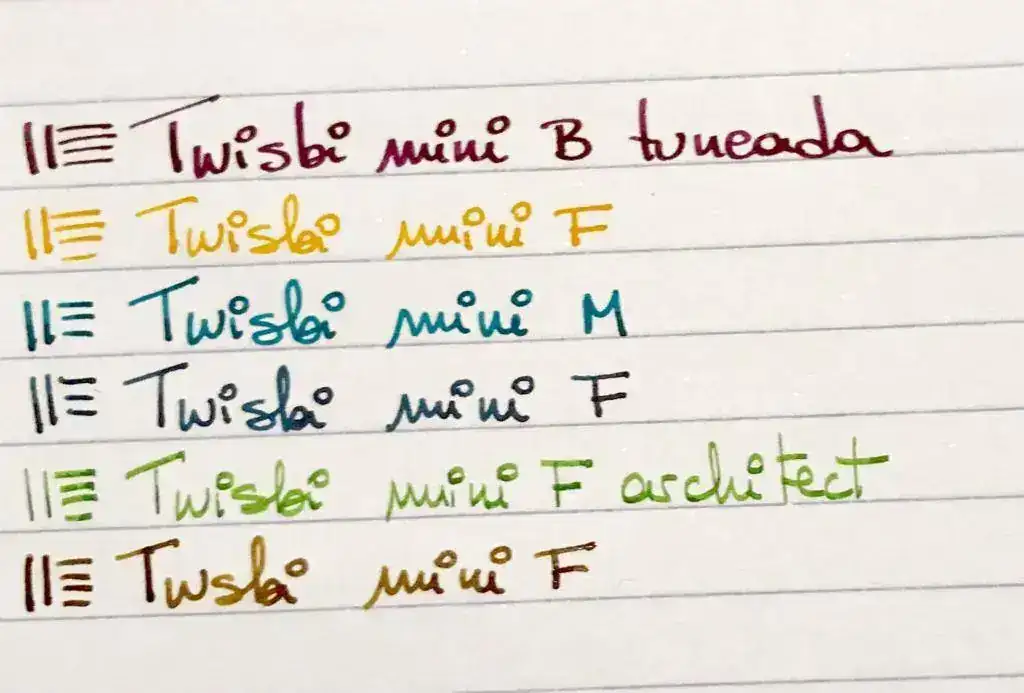 Twisbi mini B tuneada
Twisbi mini F
Twisbi mini M
Twisbi mini F
Twisbi mini F architect
Twsbi mini F